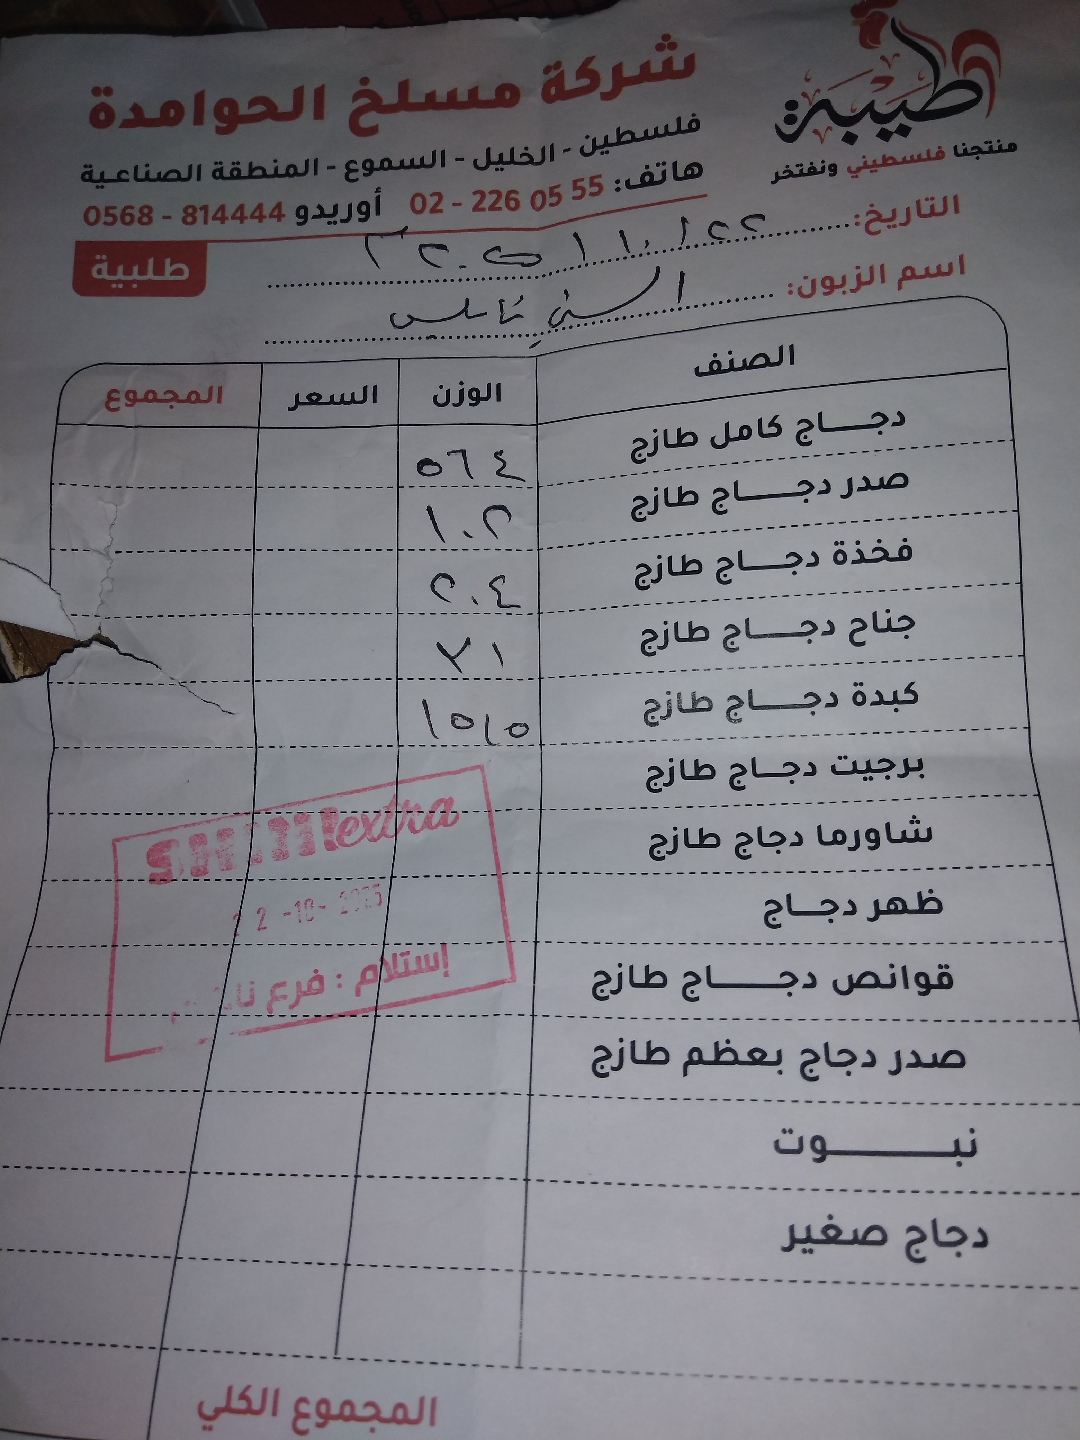 طيبة
منتجنا فلسطيني ونفتخر
شركة مسلخ الحوامدة
فلسطين - الخليل - السموع - المنطقة الصناعية
هاتف: 02 - 226 05 55 أوريدو 0568 - 814444
التاريخ:
طلبية
اسم الزبون:
الصنف الوزن السعر المجموع
دجاج كامل طازج ٥٦٤
صدر دجاج طازج ١٠٢
فخذة دجاج طازج ٢٠٤
جناح دجاج طازج ٢١
كبدة دجاج طازج ١٥,٥
برجيت دجاج طازج
شاورما دجاج طازج
ظهر دجاج
قوانص دجاج طازج
صدر دجاج بعظم طازج
نبوت
دجاج صغير
extra
22 -10- 2025
إستلام : فرع
المجموع الكلي